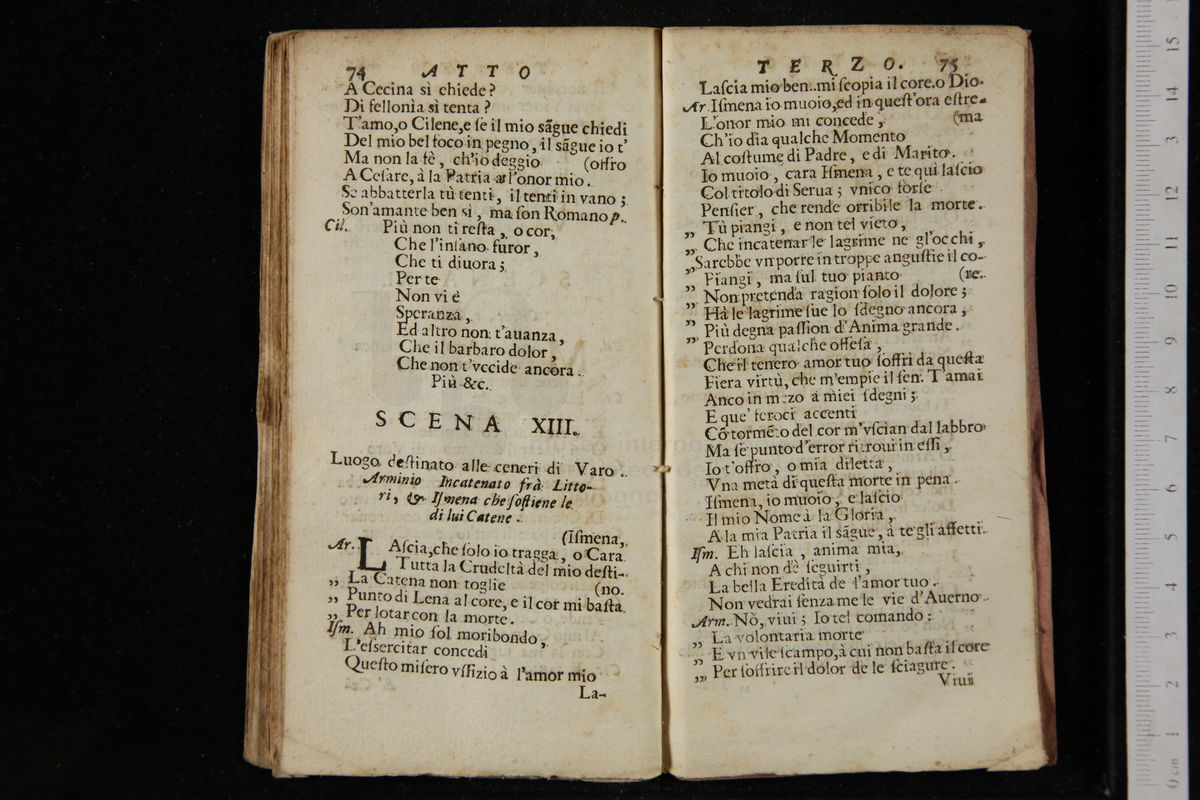 74 ATTO
A Cecina sì chiede?
Di fellonìa sì tenta?
T'amo,o Cilene,e ſe il mio sãgue chiedi
Del mio bel foco in pegno, il sãgue io t'
Ma non la fè, ch'io deggio (offro
A Ceſare, à la Patria a l'onor mio.
Se abbatterla tù tenti, il tenti in vano;
Son'amante ben sì, ma ſon Romano p.
Cil. Più non ti reſta, o cor,
Che l'inſano furor,
Che ti diuora;
Per te
Non vi è
Speranza,
Ed altro non t'auanza,
Che il barbaro dolor,
Che non t'vccide ancora.
Più &c.
SCENA XIII.
Luogo deſtinato alle ceneri di Varo.
Arminio Incatenato frà Litto-
ri, & Iſmena che ſoſtiene le
di lui Catene.
(Iſmena,
Ar. LAſcia,che ſolo io tragga, o Cara
Tutta la Crudeltà del mio deſti-
„ La Catena non toglie (no.
„ Punto di Lena al core, e il cor mi baſta
„ Per lotar con la morte.
Iſm. Ah mio ſol moribondo,
L'eſsercitar concedi
Queſto miſero vffizio à l'amor mio
La-
TERZO. 75
Laſcia mio ben..mi ſcopia il core.o Dio.
Ar. Iſmena io muoio,ed in queſt'ora eſtre-
L'onor mio mi concede, (ma
Ch'io dia qualche Momento
Al coſtume di Padre, e di Marito.
Io muoio, cara Iſmena, e te quì laſcio
Col titolo di Serua; vnico forſe
Penſier, che rende orribile la morte.
„ Tù piangi, e non tel vieto,
„ Che incatenar le lagrime ne gl'occhi,
„ Sarebbe vn porre in troppe anguſtie il co-
„ Piangi, ma ſul tuo pianto (re.
„ Non pretenda ragion ſolo il dolore;
„ Hà le lagrime ſue lo ſdegno ancora,
„ Più degna paſſion d'Anima grande.
„ Perdona qualche offeſa,
Che il tenero amor tuo ſoffrì da queſta
Fiera virtù, che m'empie il ſen. T'amai
Anco in mezo a miei ſdegni;
E que' feroci accenti
Cõ tormẽto del cor m'vſcian dal labbro
Ma ſe punto d'error ritroui in eſſi,
Io t'offro, o mia diletta,
Vna metà di queſta morte in pena.
Iſmena, io muoio, e laſcio
Il mio Nome à la Gloria,
A la mia Patria il sãgue, a te gli affetti.
Iſm. Eh laſcia, anima mia,
A chi non dè ſeguirti,
La bella Eredità de l'amor tuo.
Non vedrai ſenza me le vie d'Auerno.
Arm. Nò, viui; Io tel comando;
„ La volontaria morte
„ E vn vile ſcampo,à cui non baſta il core
„ Per ſoffrire il dolor de le ſciagure.
Viui